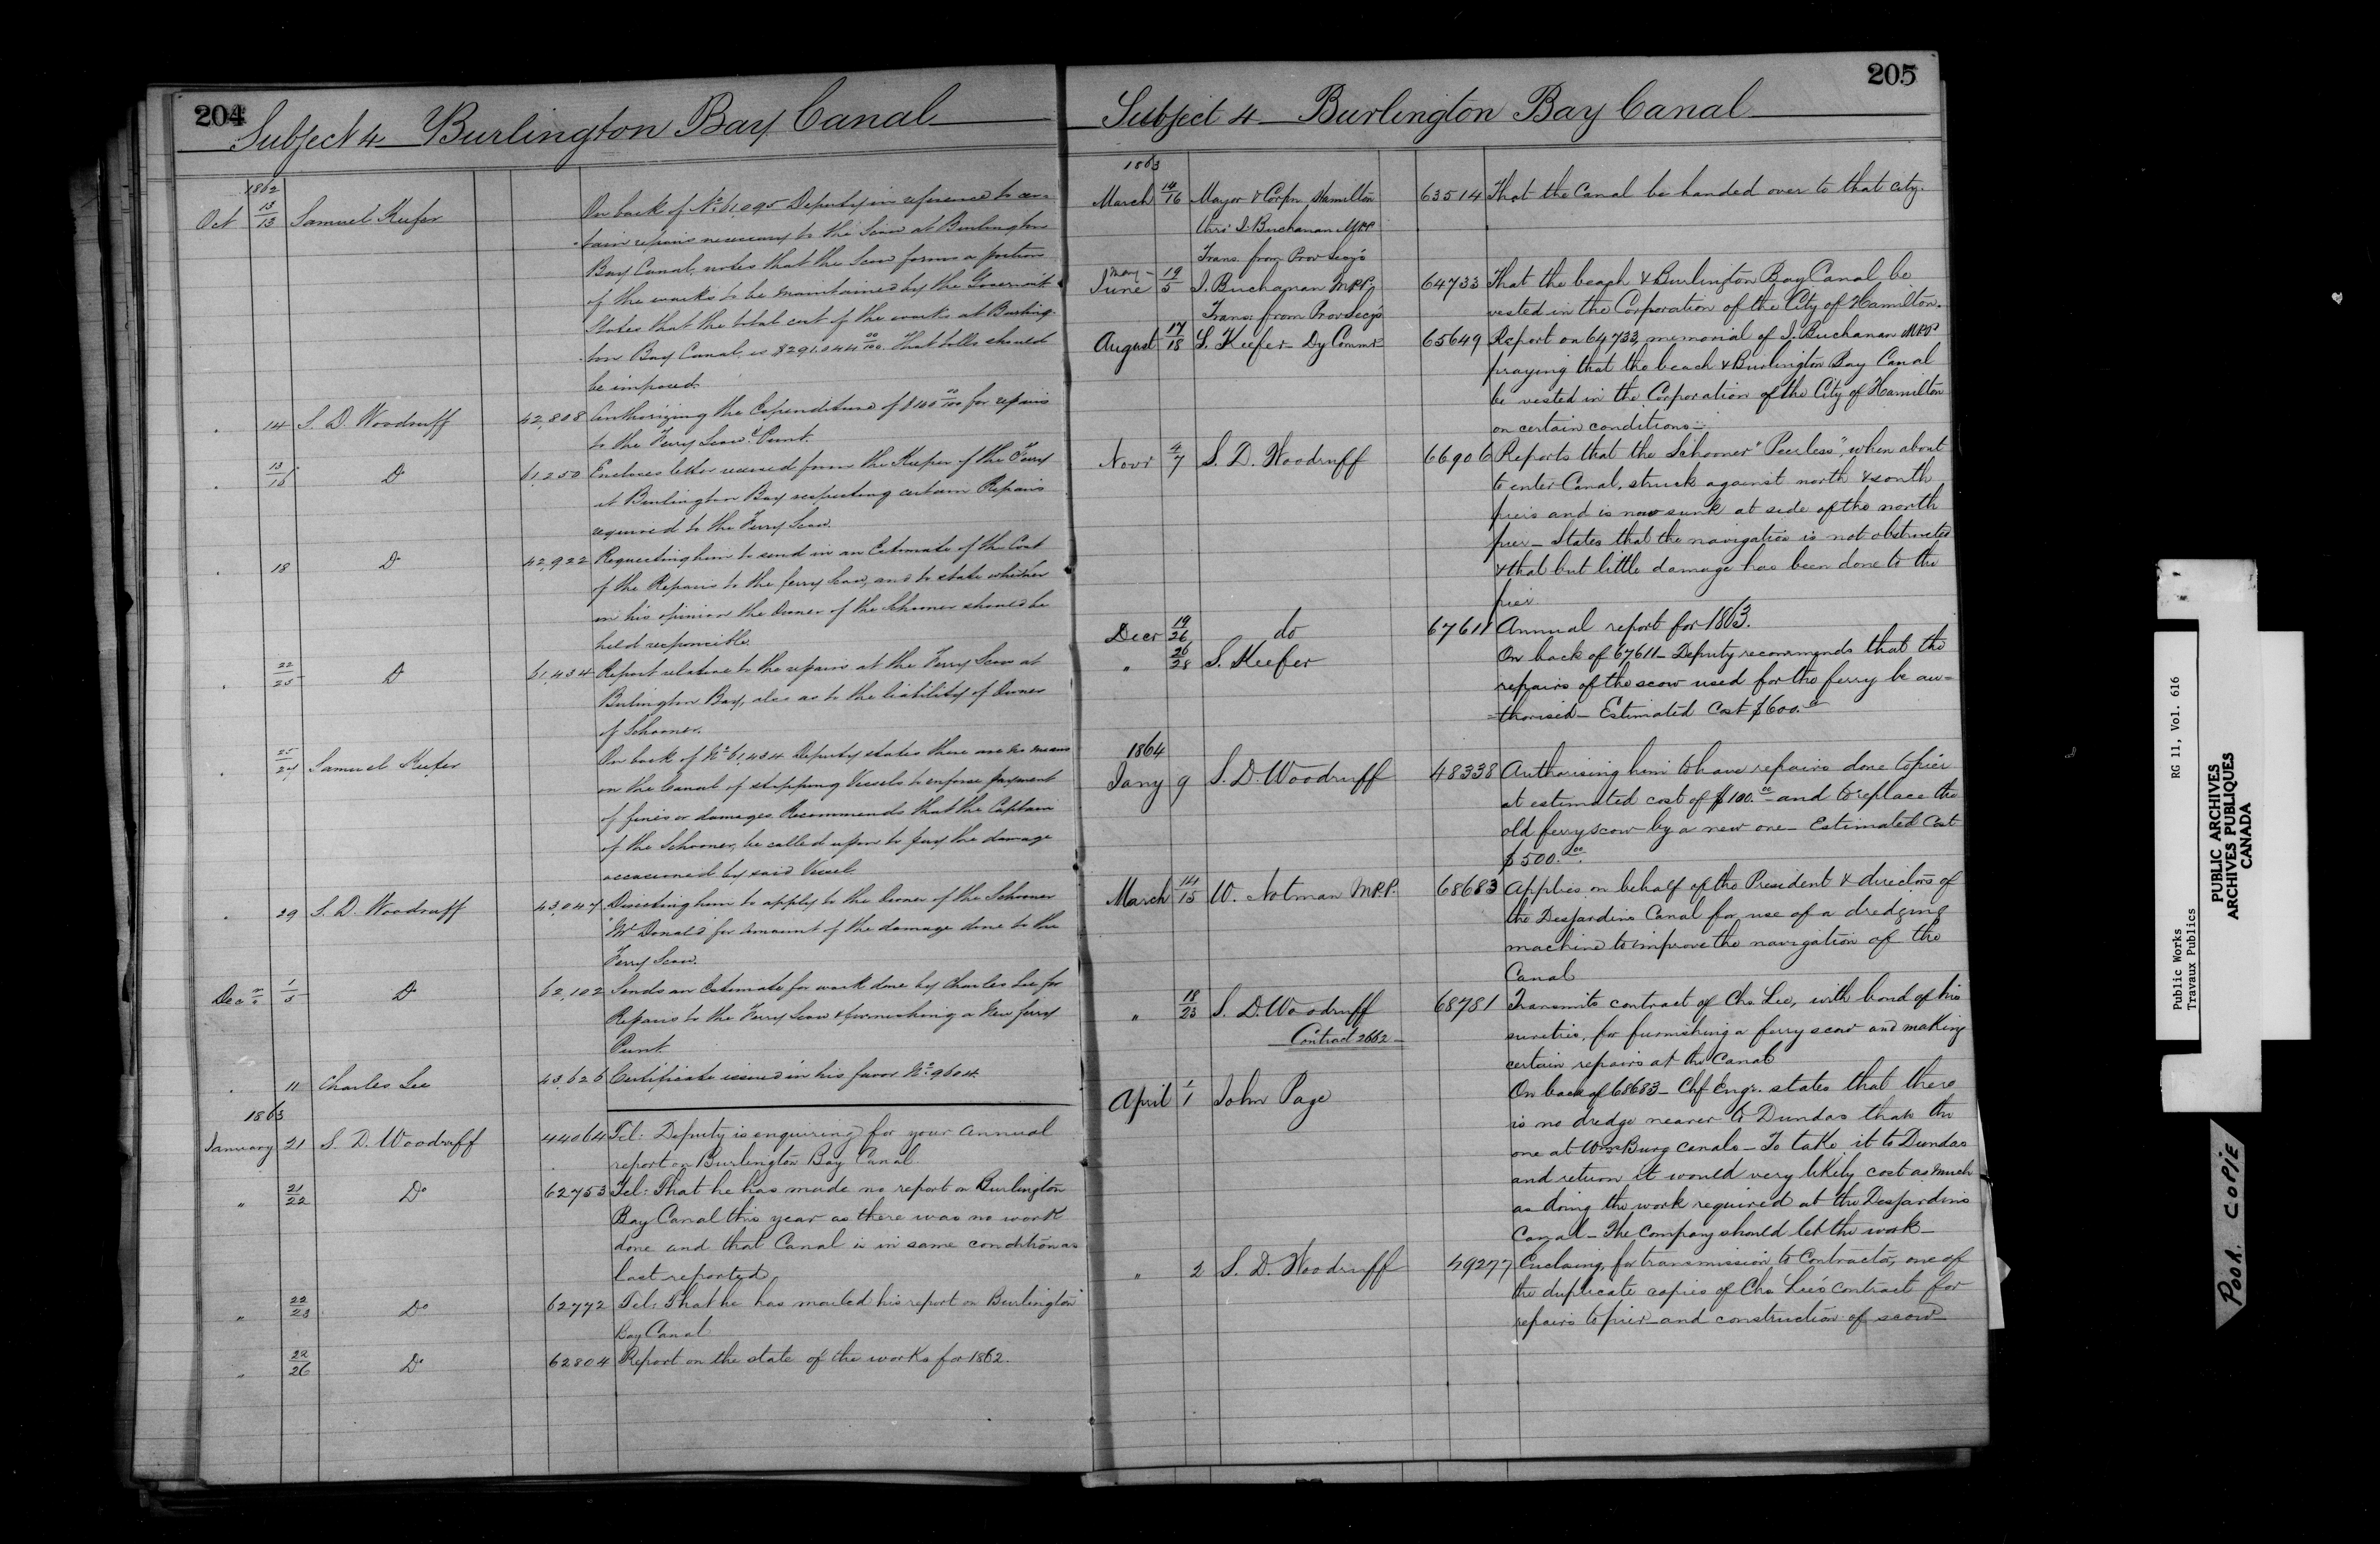 204
Subject 4 Burlington Bay Canal
1862
Oct 13/13 Samuel Keefer On back of No 61,095 Deputy in reference to cer-
tain repairs necessary to the Scow at Burlington
Bay Canal, notes that the Scow forms a portion
of the works to be maintained by the Governmt
States that the total cost of the works at Burling-
ton Bay Canal is $291,044 00/100. That tolls should
be imposed.
" 14 S. D. Woodruff 42,808 Authorizing the Expenditure of $140 00/100 for repairs
to the Ferry Scow & Punt.
" 13/15 Do 61,250 Encloses letter received from the Keeper of the Ferry
at Burlington Bay respecting certain Repairs
required to the Ferry Scow.
" 18 Do 42,922 Requesting him to send in an Estimate of the Cost
of the Repairs to the ferry Scow, and to state whether
in his opinion the Owner of the Schooner should be
held responsible.
" 22/25 Do 61,434 Report relative to the repairs at the Ferry Scow at
Burlington Bay, also as to the liability of Owner
of Schooner.
" 25/27 Samuel Keefer On back of No 61,434 Deputy states there are no means
on the Canal of stopping Vessels to enforce payment
of fines or damages Recommends that the Captain
of the Schooner, be called upon to pay the damage
occasioned by said Vessel.
" 29 S. D. Woodruff 43,047 Directing him to apply to the Owner of the Schooner
"McDonald" for amount of the damage done to the
Ferry Scow.
Decr 1/5 Do 62,102 Sends an Estimate for work done by Charles Lee for
Repairs to the Ferry Scow & furnishing a New ferry
Punt.
" 11 Charles Lee 43,626 Certificate issued in his favor No 9604.
1863
January 21 S. D. Woodruff 44064 Tel: Deputy is enquiring for your annual
report on Burlington Bay Canal.
" 21/22 Do 62753 Tel: That he has made no report on Burlington
Bay Canal this year as there was no work
done and that Canal is in same condition as
last reported.
" 22/23 Do 62772 Tel: That he has mailed his report on Burlington
Bay Canal
" 22/26 Do 62804 Report on the state of the works for 1862.
205
Subject 4 Burlington Bay Canal
1863
March 14/16 Mayor & Corpn Hamilton 63514 That the Canal be handed over to that city.
thro' I. Buchanan MPP
Trans. from Prov Secy's
May 19
June 5 I. Buchanan M.P.P. 64733 That the beach & Burlington Bay Canal be
Trans: from Prov Secy's vested in the Corporation of the City of Hamilton.
August 17/18 S. Keefer Dy Commr 65649 Report on 64733, memorial of I. Buchanan MPP
praying that the beach & Burlington Bay Canal
be vested in the Corporation of the City of Hamilton
on certain conditions.
Novr 4/7 S. D. Woodruff 66906 Reports that the Schooner "Peerless", when about
to enter Canal, struck against north & south
piers and is now sunk at side of the north
pier - States that the navigation is not obstructed
& that but little damage has been done to the
pier
Decr 19/26 do 67611 Annual report for 1863.
" 26/28 S. Keefer On back of 67611 - Deputy recommends that the
repairs of the scow used for the ferry be au=
=thorised - Estimated Cost $600.00
1864
Jany 9 S. D. Woodruff 48338 Authorising him to have repairs done to pier
at estimated cost of $100.00 and to replace the
old ferry scow by a new one - Estimated Cost
$500.00.
March 14/15 W. Notman M.P.P. 68683 Applies on behalf of the President & directors of
the Desjardins Canal for use of a dredging
machine to improve the navigation of the
Canal
" 18/23 S. D. Woodruff 68781 Transmits contract of Chs Lee, with bond of his
Contract 2662 sureties, for furnishing a ferry scow and making
certain repairs at the Canal
April 1/1 John Page On back of 68683 - Chf Engr. states that there
is no dredge nearer to Dundas than the
one at WmsBurg canals - To take it to Dundas
and return it would very likely cost as much
as doing the work required at the Desjardins
Canal - The Company should let the work -
" 2 S. D. Woodruff 49277 Enclosing, for transmission to Contractor, one of
the duplicate copies of Chs Lee's contract for
repairs to pier and construction of scow
Public Works RG 11, Vol. 616
Travaux Publics
PUBLIC ARCHIVES
ARCHIVES PUBLIQUES
CANADA
POOR COPIE